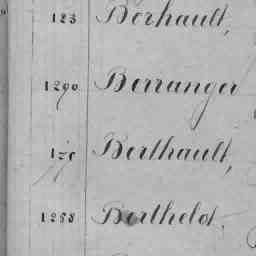 123 Berhault,
1290 Berranger
Berthault,
1288 Berthelot.